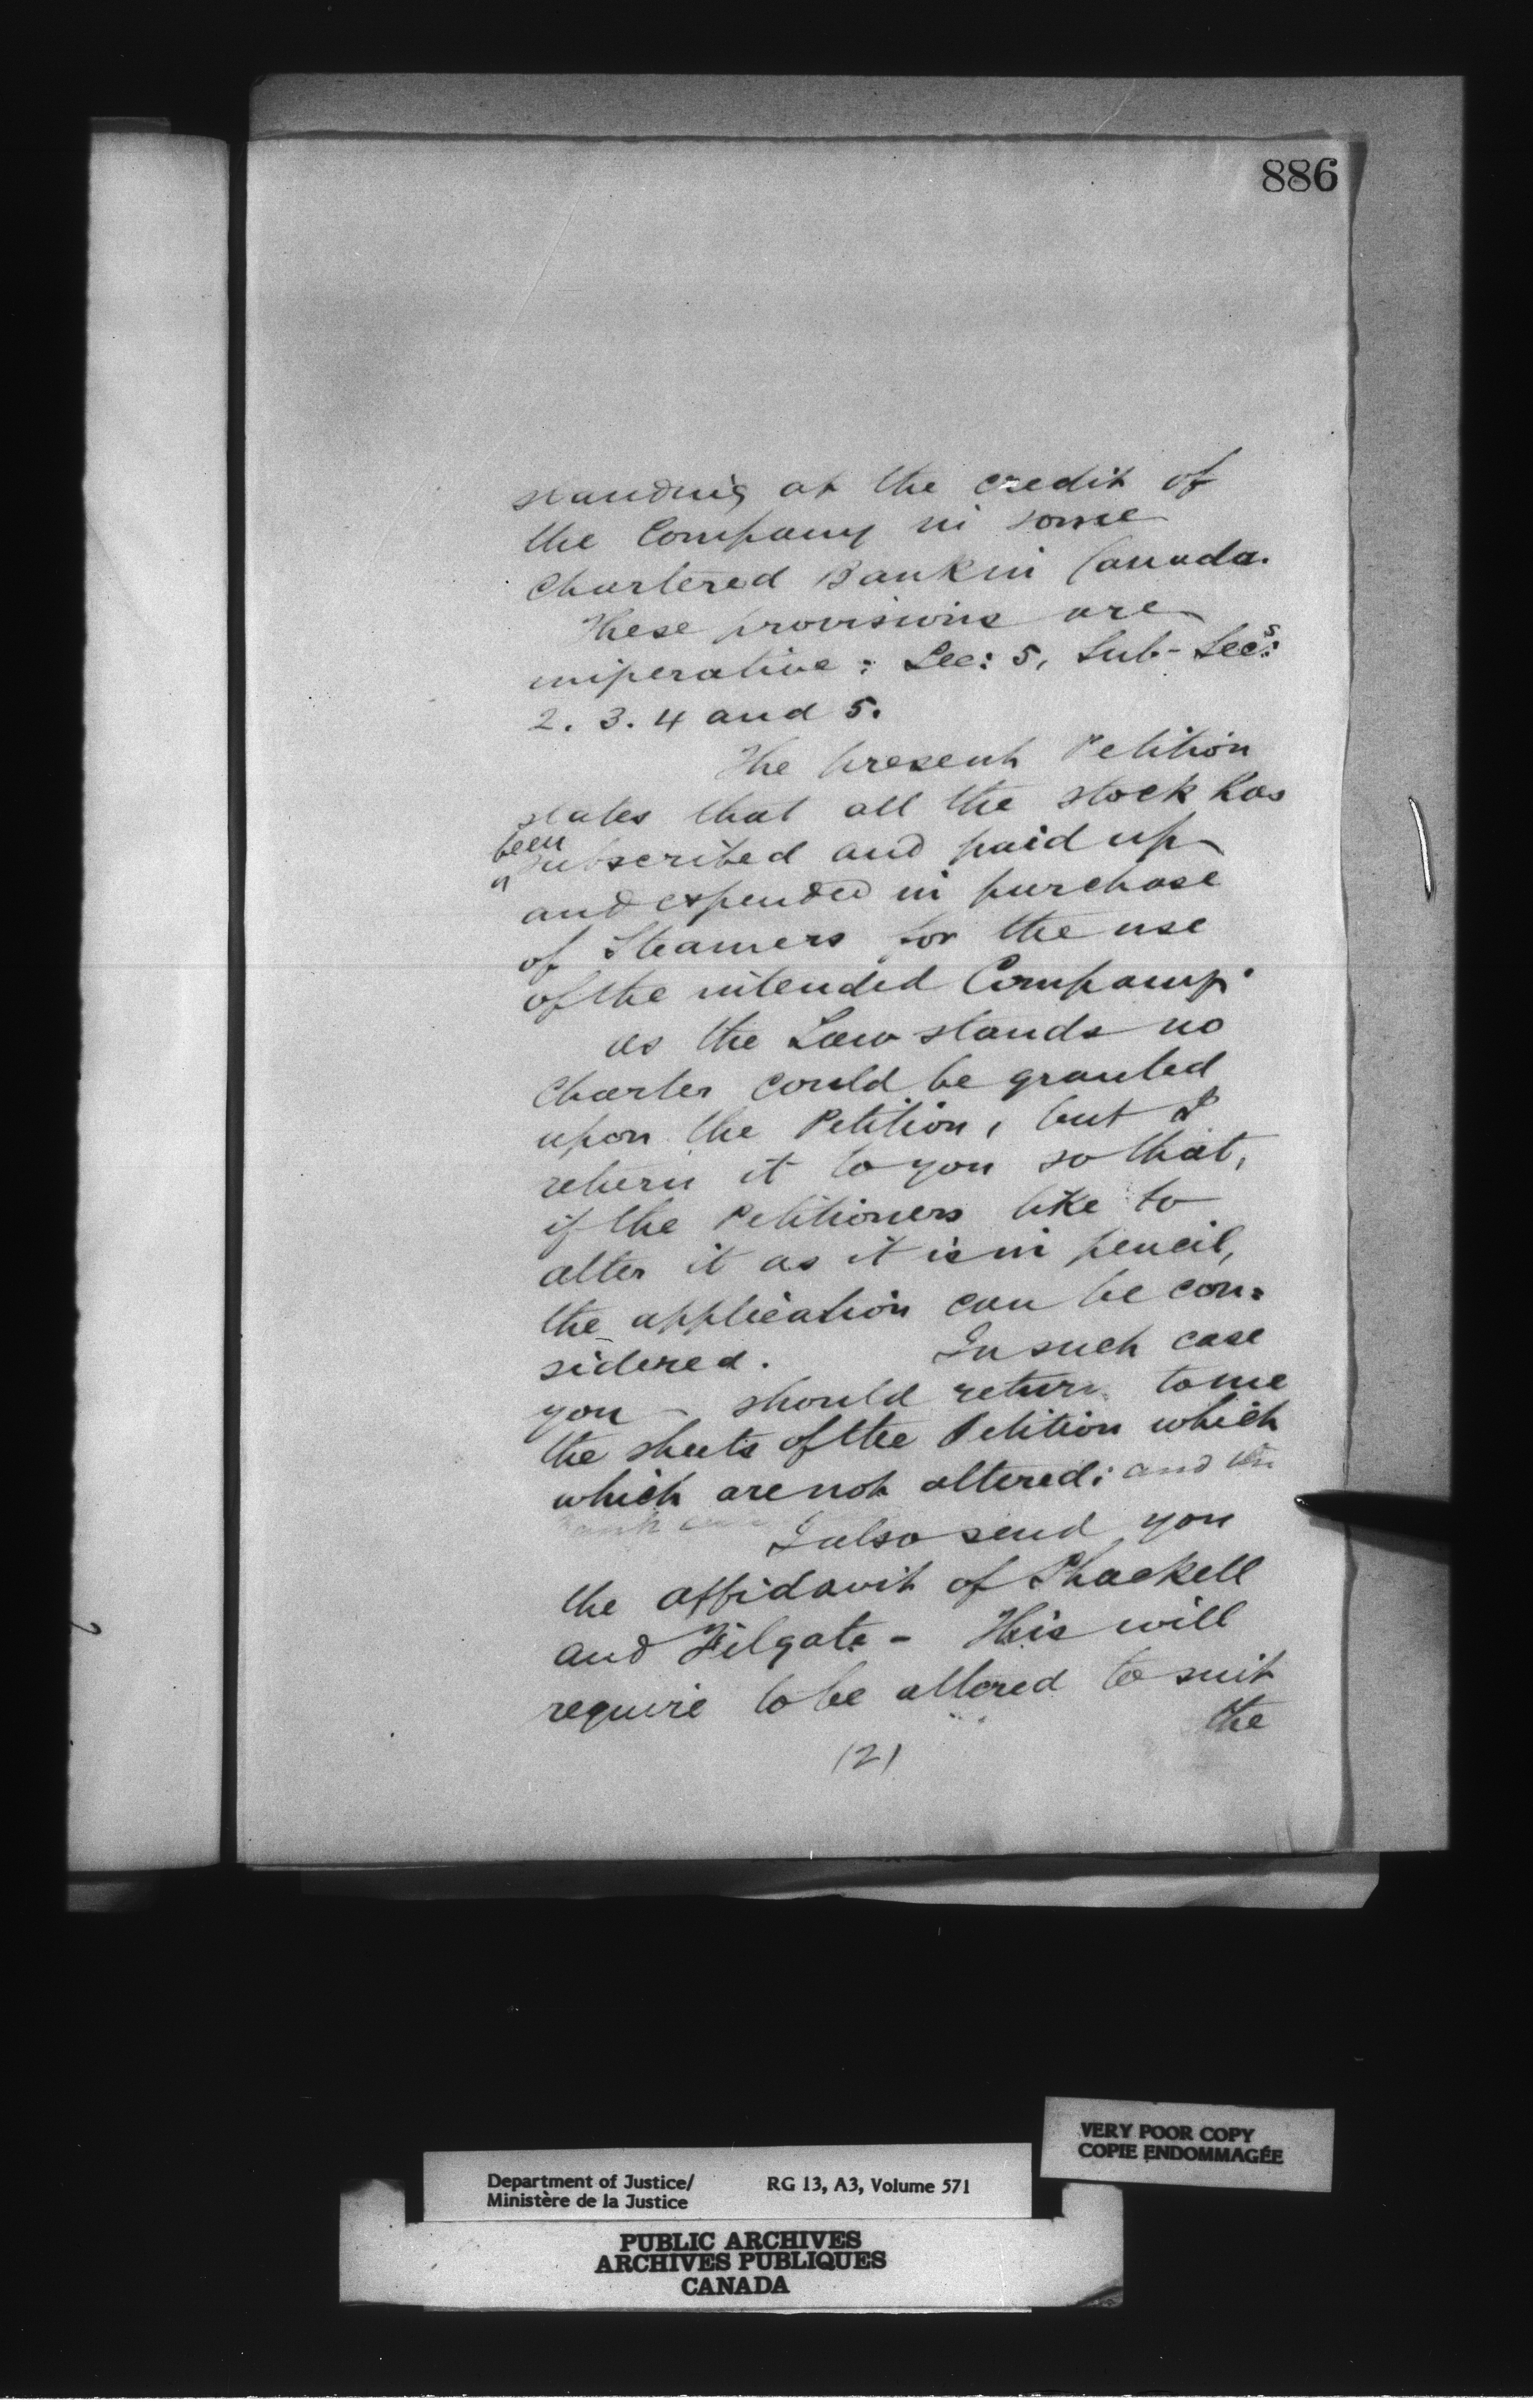 886
standing at the credit of
the Company in some
Chartered Bank in Canada.
These provisions are
imperative: Sec: 5, Sub-Secs:
2. 3. 4 and 5.
The present Petition
states that all the stock has
been
subscribed and paid up
and expended in purchase
of Steamers for the use
of the intended Company.
as the Law stands no
Charter could be granted
upon the Petition, but I
return it to you so that,
if the Petitioners like to
alter it as it is in pencil,
the application can be con=
sidered. In such case
you - should return to me
the sheets of the Petition which
which are not altered: and the
I also send you
the affidavit of Shackell
and Filgate - This will
require to be altered to suit
the
(2)
VERY POOR COPY
COPIE ENDOMMAGÉE
Department of Justice/ RG 13, A3, Volume 571
Ministère de la Justice
PUBLIC ARCHIVES
ARCHIVES PUBLIQUES
CANADA